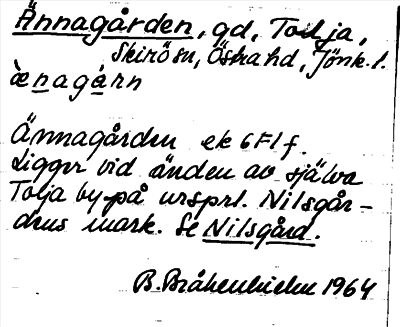 Ännagården, gd, Tolja,
Skirö sn, Östra hd, Jönk. l.
ænagàrn
Ännagården ek 6 F1 f.
Ligger vid änden av själva
Tolja by på ursprl. Nilsgår-
dens mark. Se Nilsgård.
B. Bråkenhielm 1964